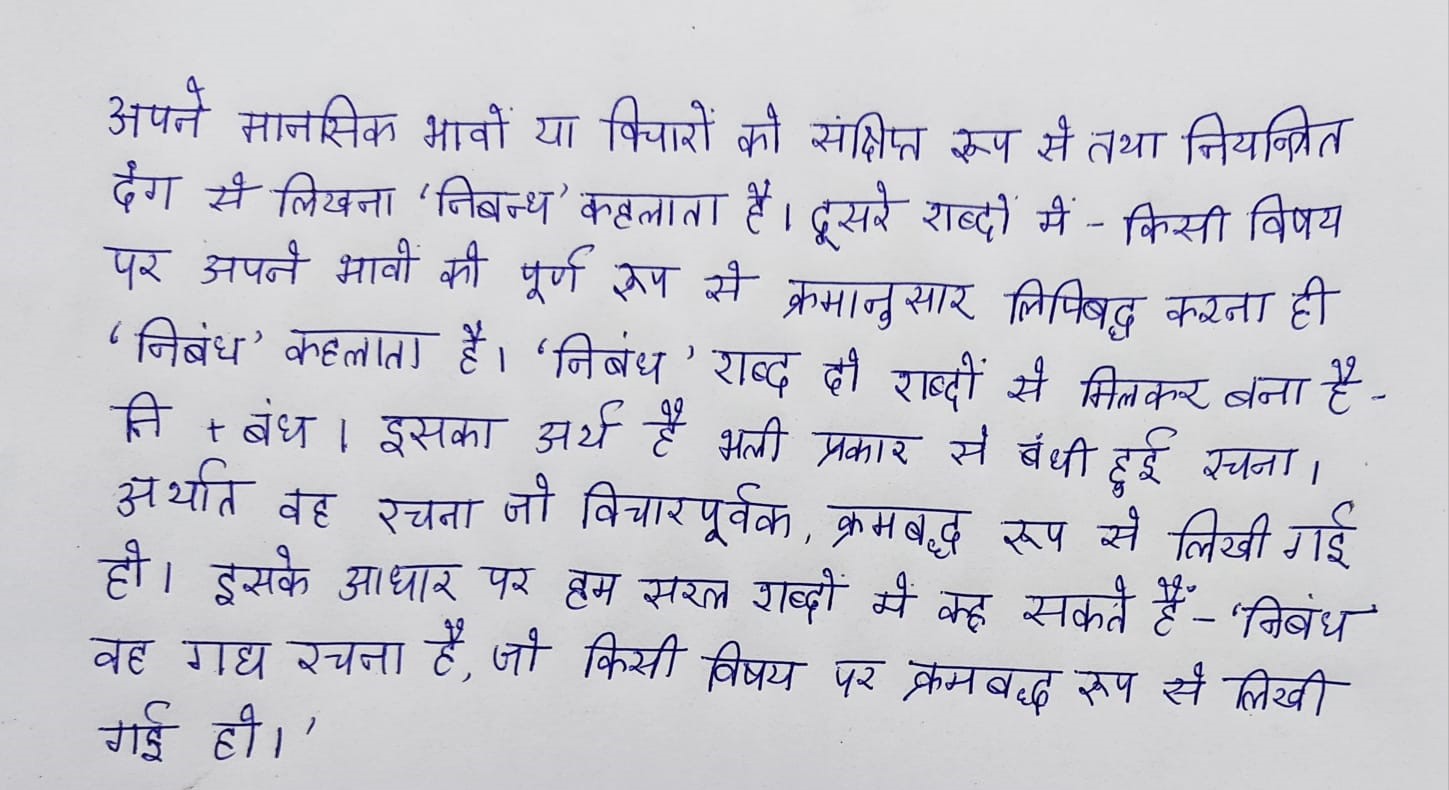 अपने मानसिक भावों या विचारों को संक्षिप्त रूप से तथा नियन्त्रित
ढंग से लिखना ‘निबन्ध’ कहलाता है। दूसरे शब्दों में - किसी विषय
पर अपने भावों को पूर्ण रूप से क्रमानुसार लिपिबद्ध करना ही
‘निबंध’ कहलाता है। ‘निबंध’ शब्द दो शब्दों से मिलकर बना है -
नि + बंध। इसका अर्थ है भली प्रकार से बंधी हुई रचना।
अर्थात वह रचना जो विचारपूर्वक, क्रमबद्ध रूप से लिखी गई
हो। इसके आधार पर हम सरल शब्दों में कह सकते हैं - ‘निबंध
वह गद्य रचना है, जो किसी विषय पर क्रमबद्ध रूप से लिखी
गई हो।’